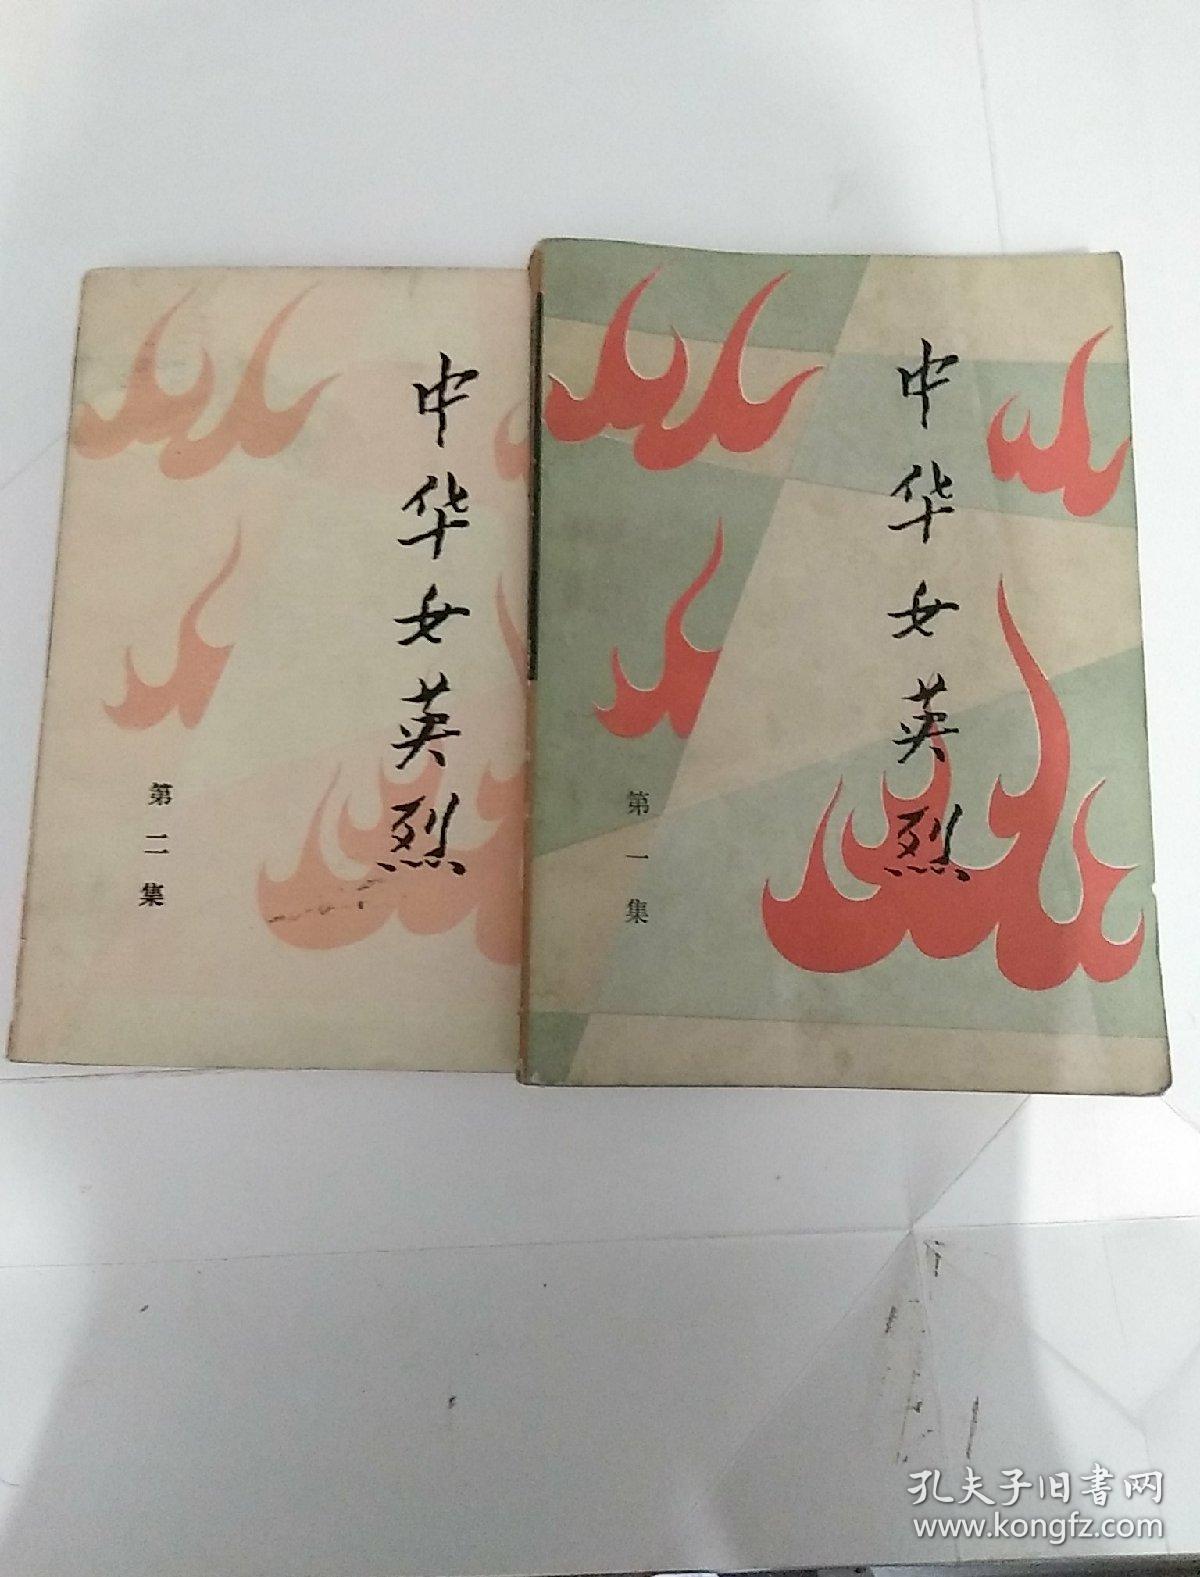 中华女英烈
第二集
中华女英烈
第一集
孔夫子旧書网
www.kongfz.com